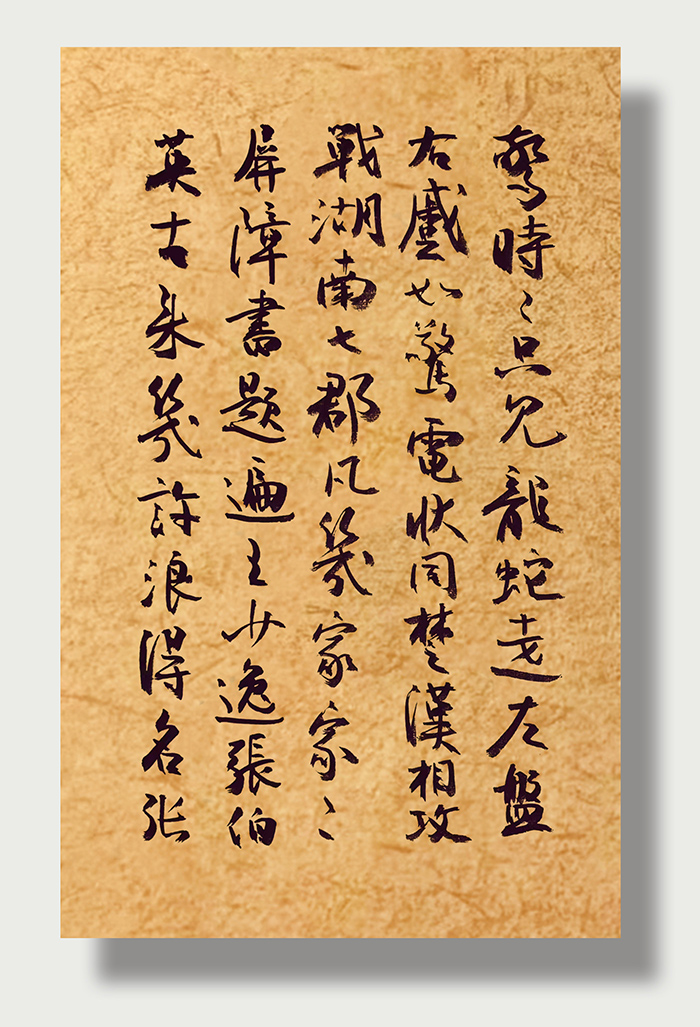 驚時〻只見龍蛇走左盤
右蹙如驚電狀同楚漢相攻
戰湖南七郡凡幾家家〻
屏障書題遍王少逸張伯
英古來幾許浪得名张